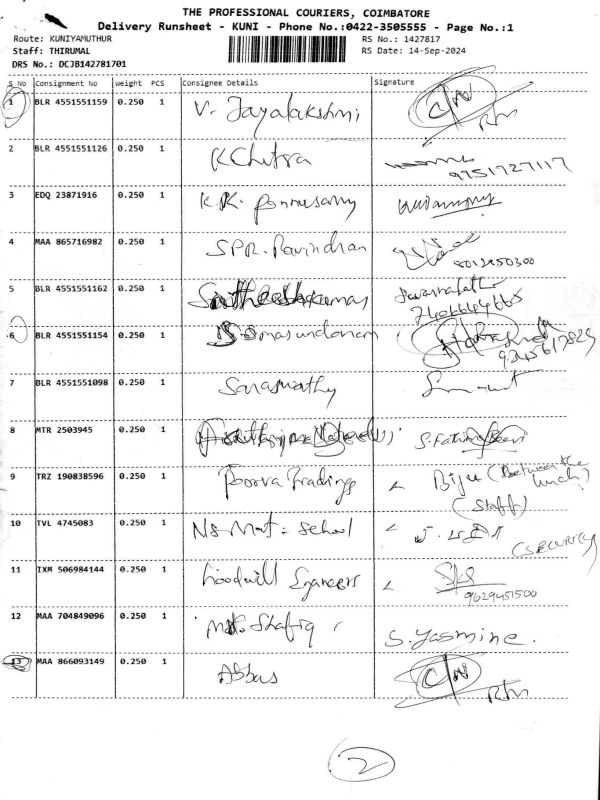 THE PROFESSIONAL COURIERS, COIMBATORE
Delivery Runsheet - KUNI - Phone No.:0422-3505555 - Page No.:1
Route: KUNIYAMUTHUR RS No.: 1427817
Staff: THIRUMAL RS Date: 14-Sep-2024
DRS No.: DCJB142781701
S No Consignment No Weight PCS Consignee Details Signature
1 BLR 4551551159 0.250 1 V. Jayalakshmi C/N Rtn
2 BLR 4551551126 0.250 1 K Chitra 9751727117
3 EDQ 23871916 0.250 1 K.K. Ponnusamy
4 MAA 865716982 0.250 1 SPR. Ravindran
5 BLR 4551551162 0.250 1
6 BLR 4551551154 0.250 1
7 BLR 4551551098 0.250 1 Saraswathy
8 MTR 2503945 0.250 1 S. Fathima Beevi
9 TRZ 190838596 0.250 1 Poorva Tradings Biju (Between the lunch)
(Staff)
10 TVL 4745083 0.250 1 NS Mat. School
(SECURITY)
11 IXM 506984144 0.250 1 Goodwill
9629451500
12 MAA 704849096 0.250 1 Md. Shafiq S. Yasmine.
13 MAA 866093149 0.250 1 Abbas C/N Rtn
2